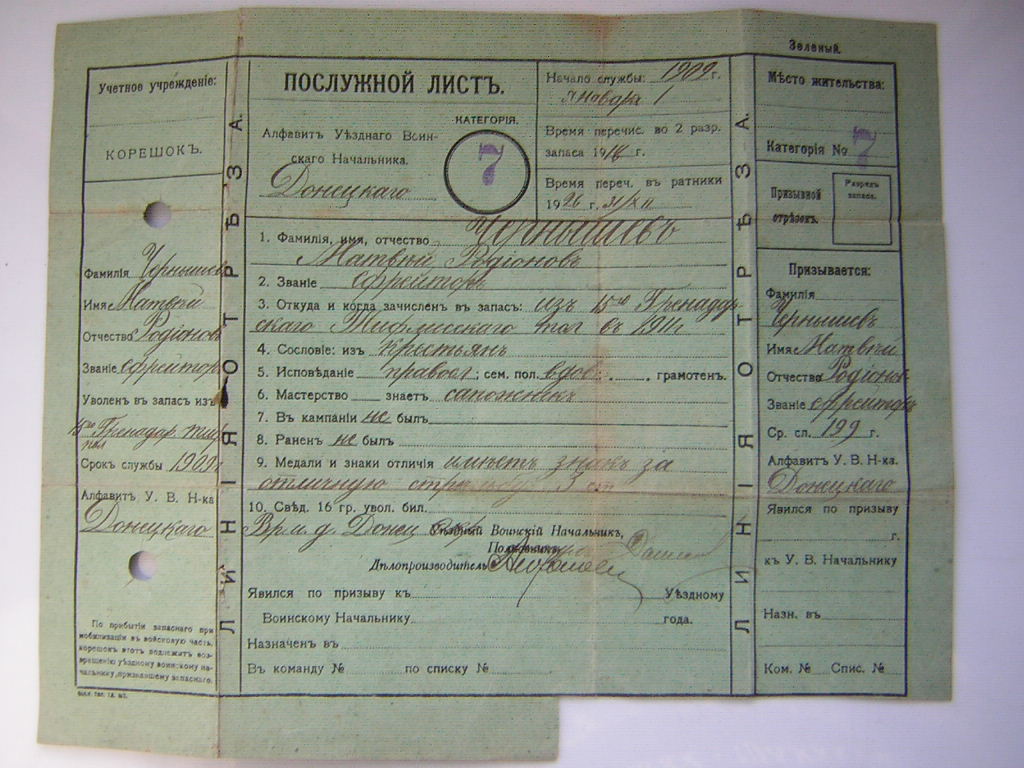 Зеленый.
Учетное учрежденіе:
КОРЕШОКЪ.
Фамилія Чернышевъ
Имя Матвѣй
Отчество Родіоновъ
Званіе ефрейторъ
Уволен въ запасъ изъ
15го Гренадар. Тиф
пол
Срокъ службы 1909 г
Алфавитъ У. В. Н-ка
Донецкаго
По прибытіи запаснаго при
мобилизаціи въ войсковую часть,
корешокъ этотъ подлежитъ воз-
вращенію уѣздному воинскому на-
чальнику, призвавшему запаснаго.
ЛИНІЯ ОТРѢЗА.
ПОСЛУЖНОЙ ЛИСТЪ.
Алфавитъ Уѣзднаго Воин-
скаго Начальника.
Донецкаго
КАТЕГОРІЯ.
7
Начало службы: 1909 г.
Января 1
Время перечис. во 2 разр.
запаса 1916 г.
Время переч. въ ратники
1926 г. 31/XII
1. Фамилія, имя, отчество Чернышевъ
Матвѣй Родіоновъ
2. Званіе ефрейторъ
3. Откуда и когда зачислен въ запасъ: изъ 15го Гренадар-
скаго Тифлисскаго пол въ 1911г
4. Сословіе: изъ крестьян
5. Исповѣданіе правосл; сем. пол. вдов. , грамотен.
6. Мастерство знаетъ сапожник
7. Въ кампаніи не былъ
8. Ранен не былъ
9. Медали и знаки отличія имѣетъ знакъ за
отличную стрельбу 3 ст
10. Свѣд. 16 гр. увол. бил.
Вр. и. д. Донец Уѣздный Воинскій Начальник,
Полковникъ
Дѣлопроизводитель
Явился по призыву къ Уѣздному
Воинскому Начальнику года.
Назначен въ
Въ команду № по списку №
ЛИНІЯ ОТРѢЗА.
Мѣсто жительства:
Категорія № 7
Призывной
отрѣзок.
Разряд
запаса.
Призывается:
Фамилія
Чернышевъ
Имя Матвѣй
Отчество Родіонов
Званіе ефрейторъ
Ср. сл. 199 г.
Алфавитъ У. В. Н-ка.
Донецкаго
Явился по призыву
г.
къ У. В. Начальнику
Назн. въ
Ком. № Спис. №